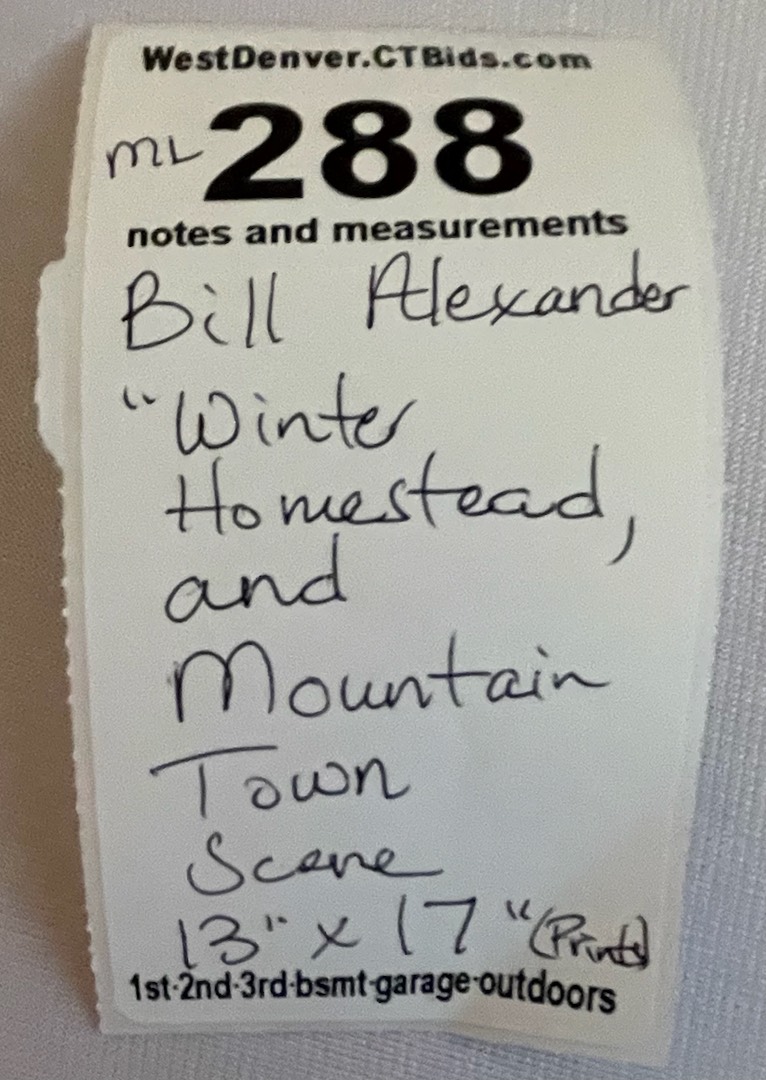 WestDenver.CTBids.com
ML 288
notes and measurements
Bill Alexander
"Winter
Homestead,
and
Mountain
Town
Scene
13" x 17" (Prints)
1st-2nd-3rd-bsmt-garage-outdoors